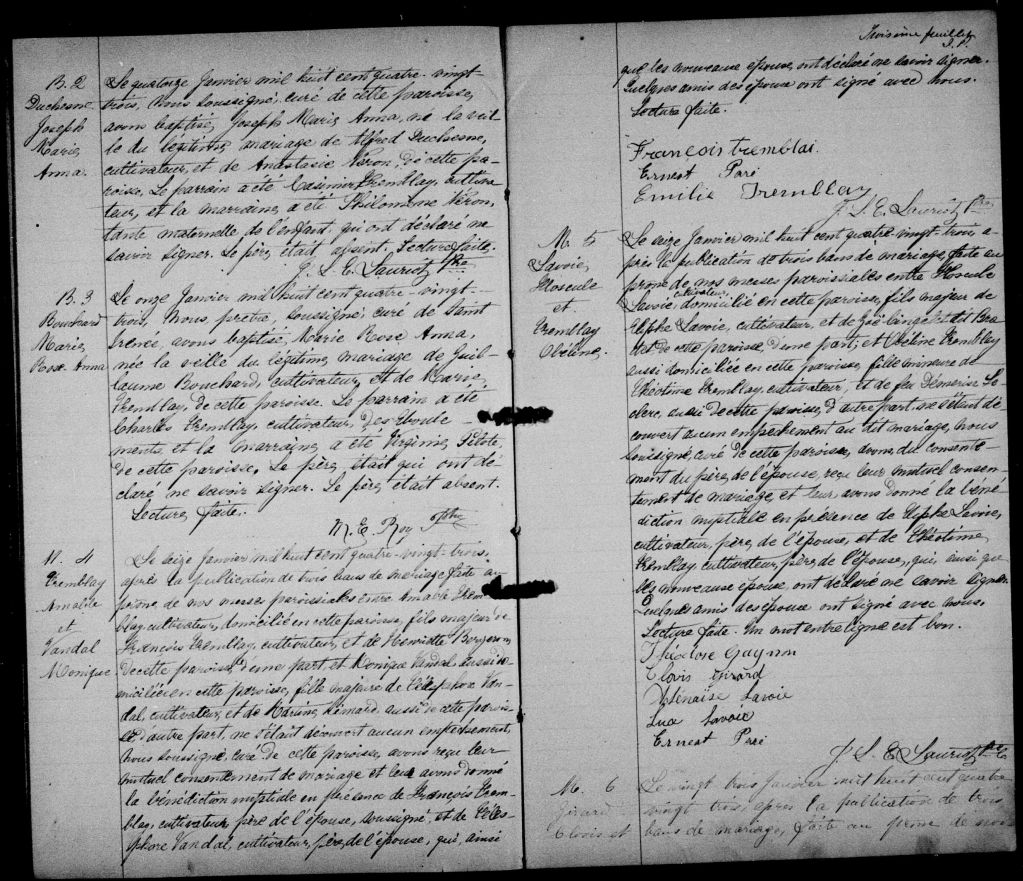 B. 2
Duchesne
Joseph
Marie
Anna.
Le quatorze Janvier mil huit cent quatre-vingt-
trois, Nous soussigné, curé de cette paroisse,
avons baptisé Joseph Marie Anna, né la veil
le du légitime mariage de Alfred Duchesne,
cultivateur, et de Anastasie Néron, de cette pa-
roisse. Le parrain a été Casimir Tremblay, cultiva
teur, et la marraine a été Philomène Néron,
tante maternelle de l'enfant qui ont déclaré ne
savoir signer. Le père était absent. Lecture faite.
J. S. E. Lauriot Ptre
B. 3
Bouchard
Marie
Rose Anna
Le onze Janvier mil huit cent quatre-vingt-
trois, Nous prêtre soussigné curé de Saint
Irénée, avons baptisé Marie Rose Anna,
née la ville du légitime mariage de Guil-
laume Bouchard, cultivateur, et de Marie
Tremblay, de cette paroisse. Le parrain a été
Charles Tremblay, cultivateur des Eboule-
ments, et la marraine a été Virginie Pilote,
de cette paroisse. Le père était qui ont dé-
claré ne savoir signer. Le père était absent.
Lecture faite.
M. E. Roy Ptre
M. 4
Tremblay
Amable
et
Vandal
Monique
Le seize Janvier mil huit cent quatre-vingt-trois,
après la publication de trois bans de mariage faite au
prône de nos messes paroissiales entre Amable Trem-
blay, cultivateur, domicilié en cette paroisse, fils majeur de
François Tremblay, cultivateur, et de Henriette
de cette paroisse d'une part et Monique Vandal aussi do
miciliée en cette paroisse, fille majeure de Télesphore Van-
dal, cultivateur, et de aussi de cette parois
se d'autre part, ne s'étant découvert aucun empêchement,
nous soussigné, curé de cette paroisse, avons reçu leur
mutuel consentement de mariage et leur avons donné
la bénédiction nuptiale en présence de François Trem-
blay, cultivateur, père de l'épouse, soussigné, et de Téles-
phore Vandal, cultivateur, père de l'épouse, qui, ainsi
Troisième feuillet
que les nouveaux époux, ont déclaré ne savoir signer.
Quelques amis des époux ont signé avec nous.
Lecture faite.
François Tremblai
Ernest Paré
Emilie Tremblay
J. S. E. Lauriot Ptre
M. 5
Savoie
et
Tremblay
Obéline.
Le seize Janvier mil huit cent quatre-vingt-trois, a-
près la publication de trois bans de mariage, faite au
prône de nos messes paroissiales entre
cultivateur
Savoie, domicilié en cette paroisse, fils majeur de
Elphe Savoie, cultivateur, et de
de cette paroisse, d'une part; et Obéline Tremblay
aussi domiciliée en cette paroisse, fille mineure de
Théotime Tremblay, cultivateur, et de feu Démerise Le
clerc, aussi de cette paroisse, d'autre part, ne s'étant dé
couvert aucun empêchement au dit mariage, nous
soussigné, curé de cette paroisse, avons, du consente-
ment du père de l'épouse, reçu leur mutuel consen-
tement de mariage et leur avons donné la béné
diction nuptiale en présence de Elphe Savoie,
cultivateur, père de l'époux, et de Théotime
Tremblay, cultivateur, père de l'épouse, qui, ainsi que
les nouveaux époux, ont déclaré ne savoir signer.
Quelques amis des époux ont signé avec nous.
Lecture faite. Un mot entre ligne est bon.
Théodore Gagnon
Clovis Girard
Savoie
Luce Savoie
Ernest Paré
J. S. E. Lauriot Ptre
M. 6
Girard
Clovis et
Le vingt trois Janvier mil huit cent quatre
vingt trois, après la publication de trois
bans de mariage, faite au prône de nos